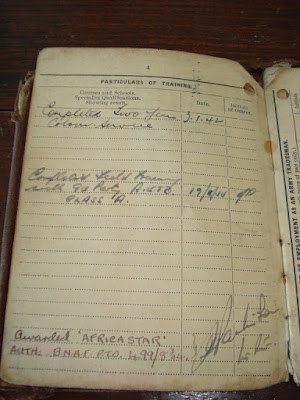 4
PARTICULARS OF TRAINING.
Courses and Schools.
Specialist Qualifications.
Showing result.
Date.
Initials
of Officer.
Completed Two Years 3.1.42
Colour Service
Completed Field Training
with
CLASS 'A'.
Awarded 'AFRICA STAR'
AUTH: B.N.A.F. P.T.O.
EMPLOYMENT AS AN ARMY TRADESMAN.